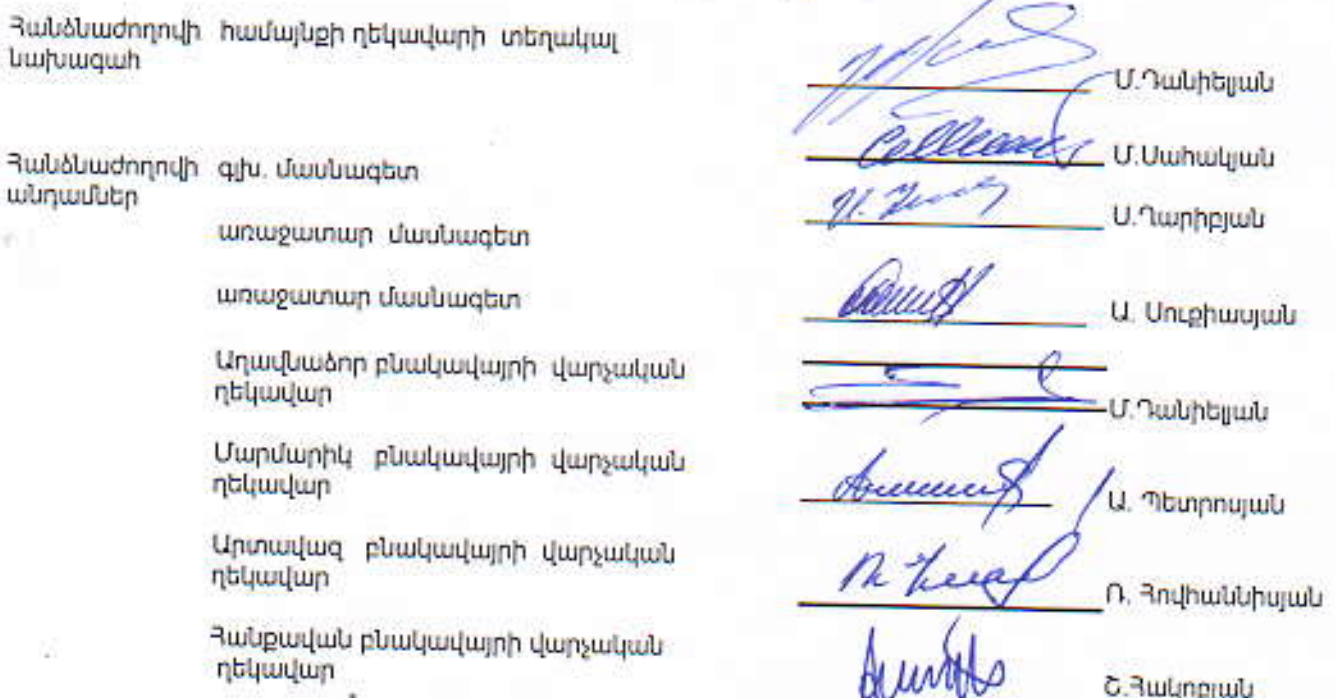 Հանձնաժողովի համայնքի ղեկավարի տեղակալ
նախագահ
Մ.Դանիելյան
Հանձնաժողովի գլխ. մասնագետ Մ.Սահակյան
անդամներ
առաջատար մասնագետ Ս.Ղարիբյան
առաջատար մասնագետ Ա. Սուքիասյան
Աղավնաձոր բնակավայրի վարչական
ղեկավար Մ.Դանիելյան
Մարմարիկ բնակավայրի վարչական
ղեկավար Ա. Պետրոսյան
Արտավազ բնակավայրի վարչական
ղեկավար Ռ. Հովհաննիսյան
Հանքավան բնակավայրի վարչական
ղեկավար Շ.Հակոբյան